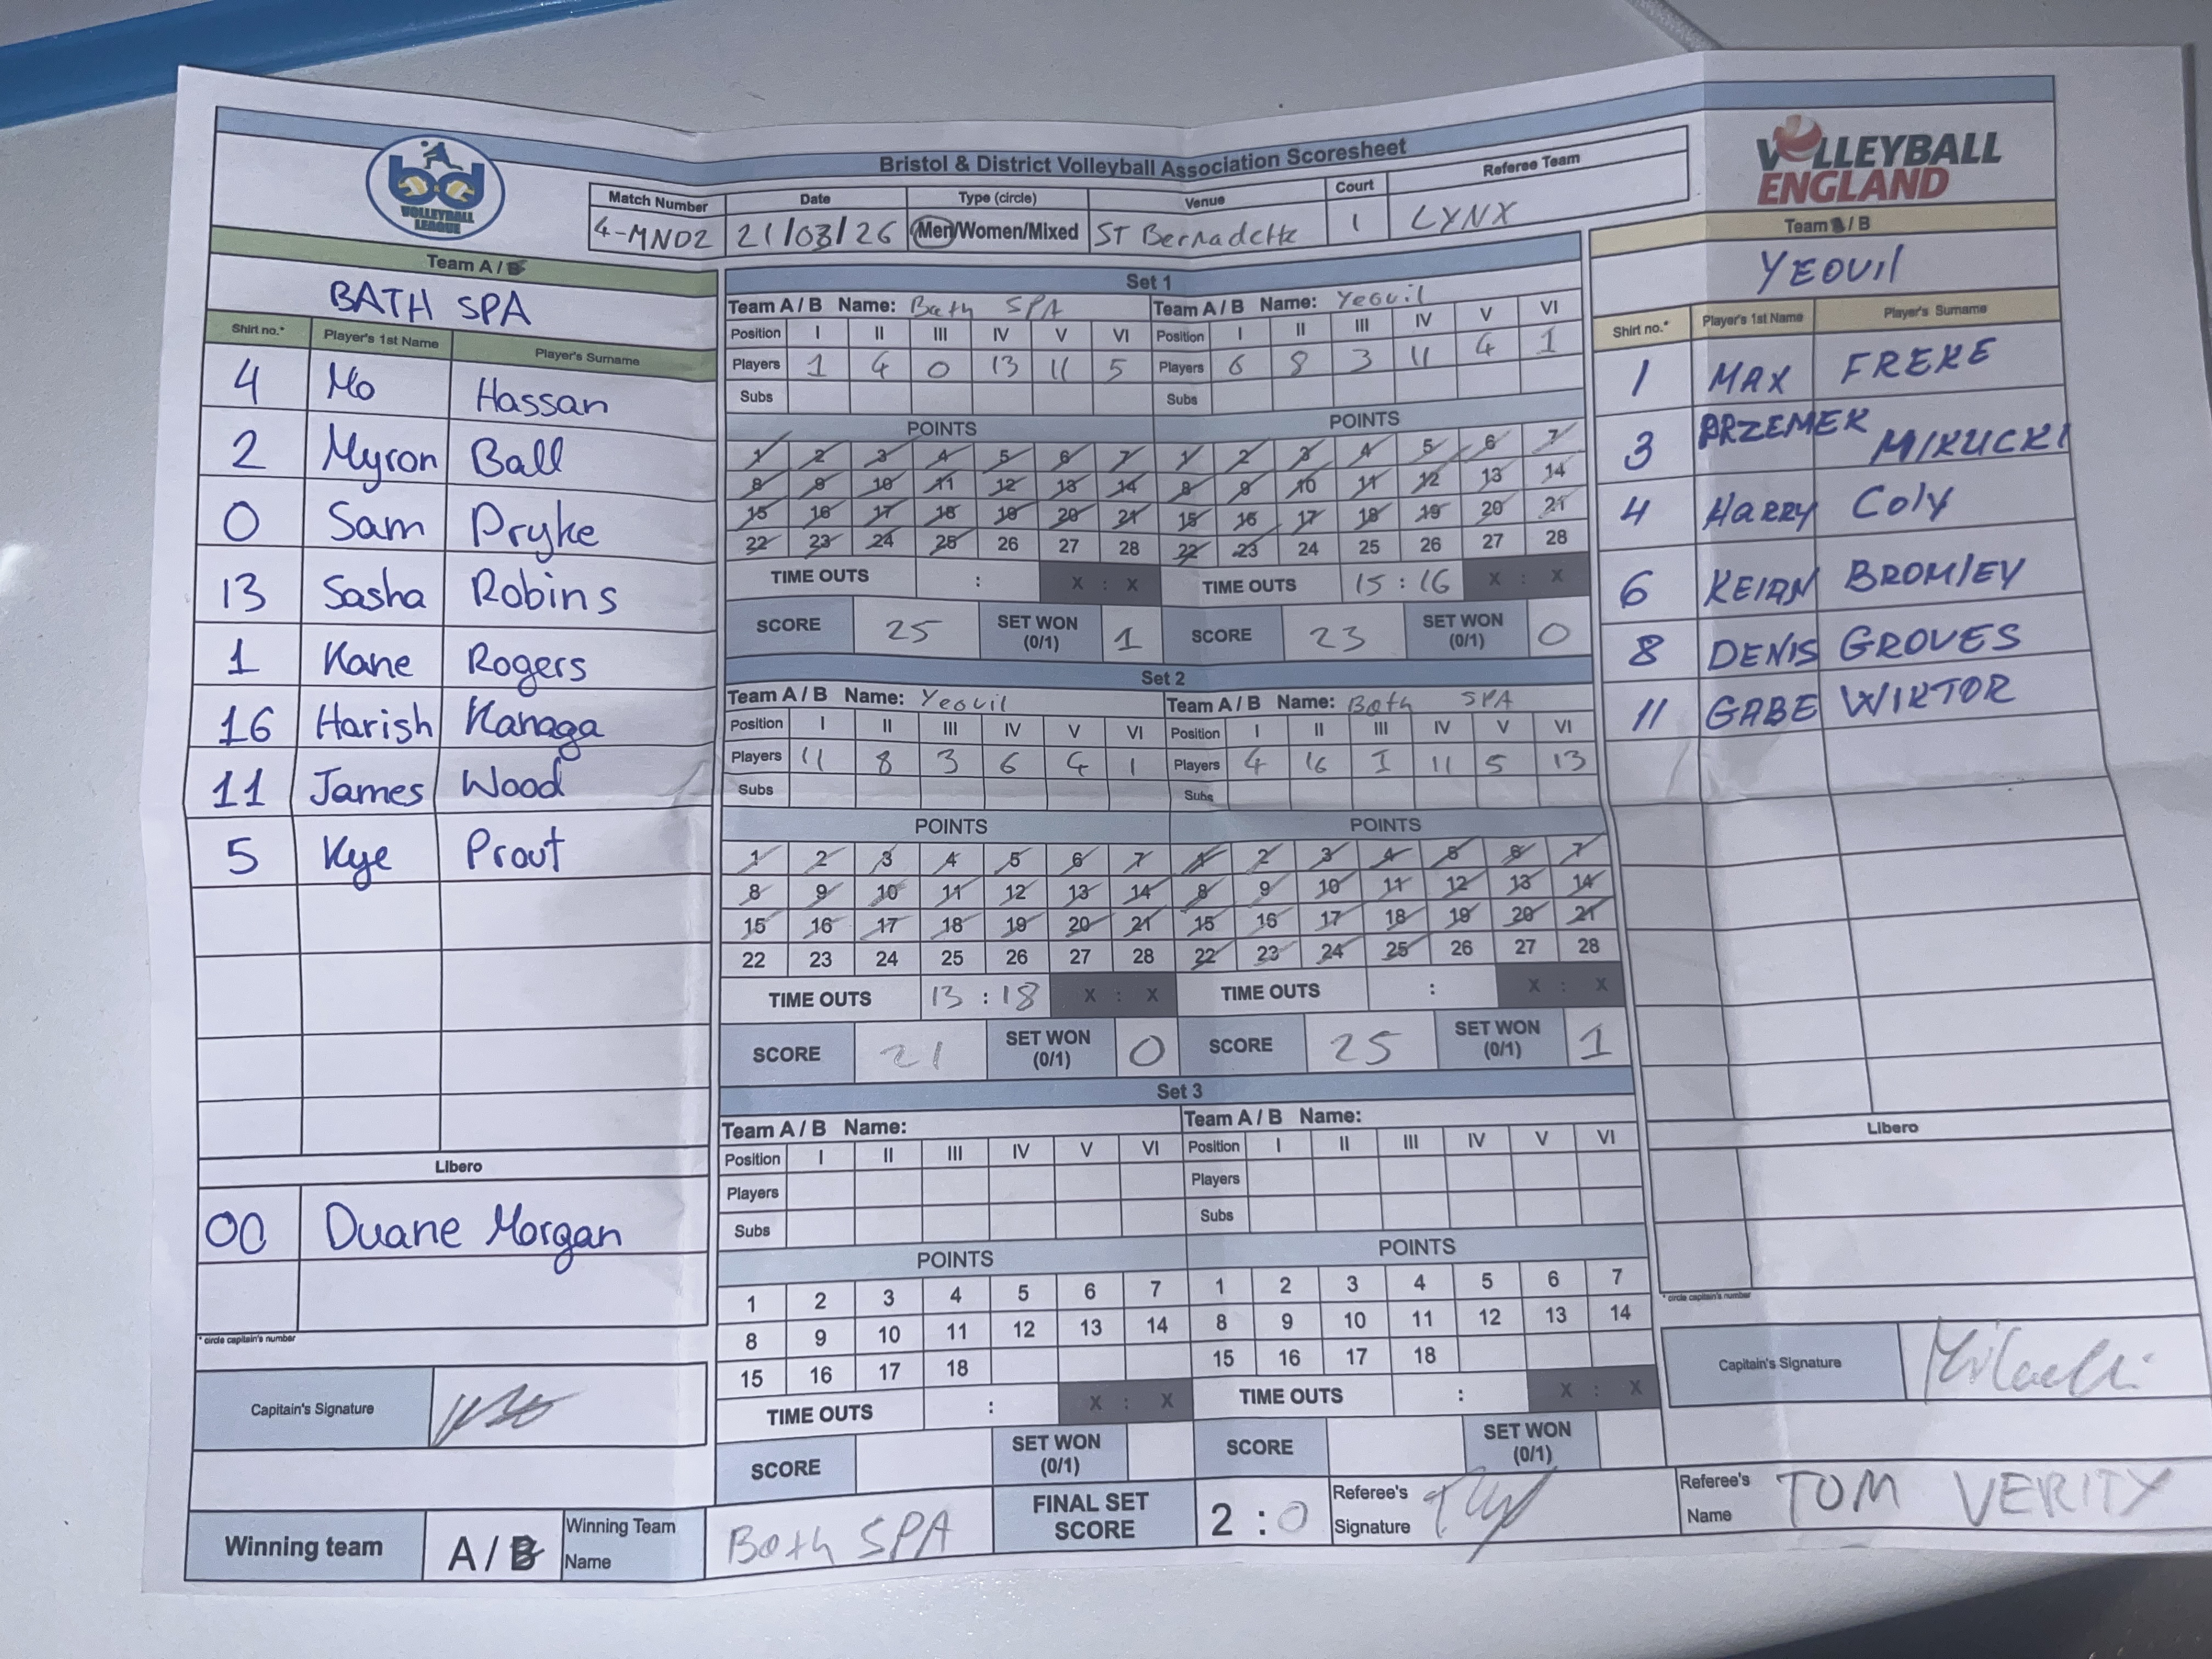 Bristol & District Volleyball Association Scoresheet
bd
VOLLEYBALL
LEAGUE
VOLLEYBALL
ENGLAND
Match Number Date Type (circle) Venue Court Referee Team
4-MND2 21/03/26 Men/Women/Mixed ST Bernadette 1 LYNX
Team A / B
BATH SPA
Shirt no.* Player's 1st Name Player's Surname
4 Mo Hassan
2 Myron Ball
0 Sam Pryke
13 Sasha Robins
1 Kane Rogers
16 Harish Kanaga
11 James Wood
5 Kye Prout
Libero
00 Duane Morgan
* circle captain's number
Captain's Signature
Set 1
Team A / B Name: Bath SPA Team A / B Name: Yeovil
Position I II III IV V VI Position I II III IV V VI
Players 1 4 0 13 11 5 Players 6 8 3 11 4 1
Subs Subs
POINTS POINTS
1 2 3 4 5 6 7 1 2 3 4 5 6 7
8 9 10 11 12 13 14 8 9 10 11 12 13 14
15 16 17 18 19 20 21 15 16 17 18 19 20 21
22 23 24 25 26 27 28 22 23 24 25 26 27 28
TIME OUTS : X : X TIME OUTS 15 : 16 X : X
SCORE 25 SET WON (0/1) 1 SCORE 23 SET WON (0/1) 0
Set 2
Team A / B Name: Yeovil Team A / B Name: Bath SPA
Position I II III IV V VI Position I II III IV V VI
Players 11 8 3 6 4 1 Players 4 16 1 11 5 13
Subs Subs
POINTS POINTS
1 2 3 4 5 6 7 1 2 3 4 5 6 7
8 9 10 11 12 13 14 8 9 10 11 12 13 14
15 16 17 18 19 20 21 15 16 17 18 19 20 21
22 23 24 25 26 27 28 22 23 24 25 26 27 28
TIME OUTS 13 : 18 X : X TIME OUTS : X : X
SCORE 21 SET WON (0/1) 0 SCORE 25 SET WON (0/1) 1
Set 3
Team A / B Name: Team A / B Name:
Position I II III IV V VI Position I II III IV V VI
Players Players
Subs Subs
POINTS POINTS
1 2 3 4 5 6 7 1 2 3 4 5 6 7
8 9 10 11 12 13 14 8 9 10 11 12 13 14
15 16 17 18 15 16 17 18
TIME OUTS : X : X TIME OUTS : X : X
SCORE SET WON (0/1) SCORE SET WON (0/1)
Team / B
YEOVIL
Shirt no.* Player's 1st Name Player's Surname
1 MAX FREKE
3 PRZEMEK MIKUCKI
4 HARRY COLY
6 KEIAN BROMLEY
8 DENIS GROVES
11 GABE WIKTOR
Libero
* circle captain's number
Captain's Signature
Winning team A / B Winning Team Name Bath SPA FINAL SET SCORE 2 : 0 Referee's Signature Referee's Name TOM VERITY